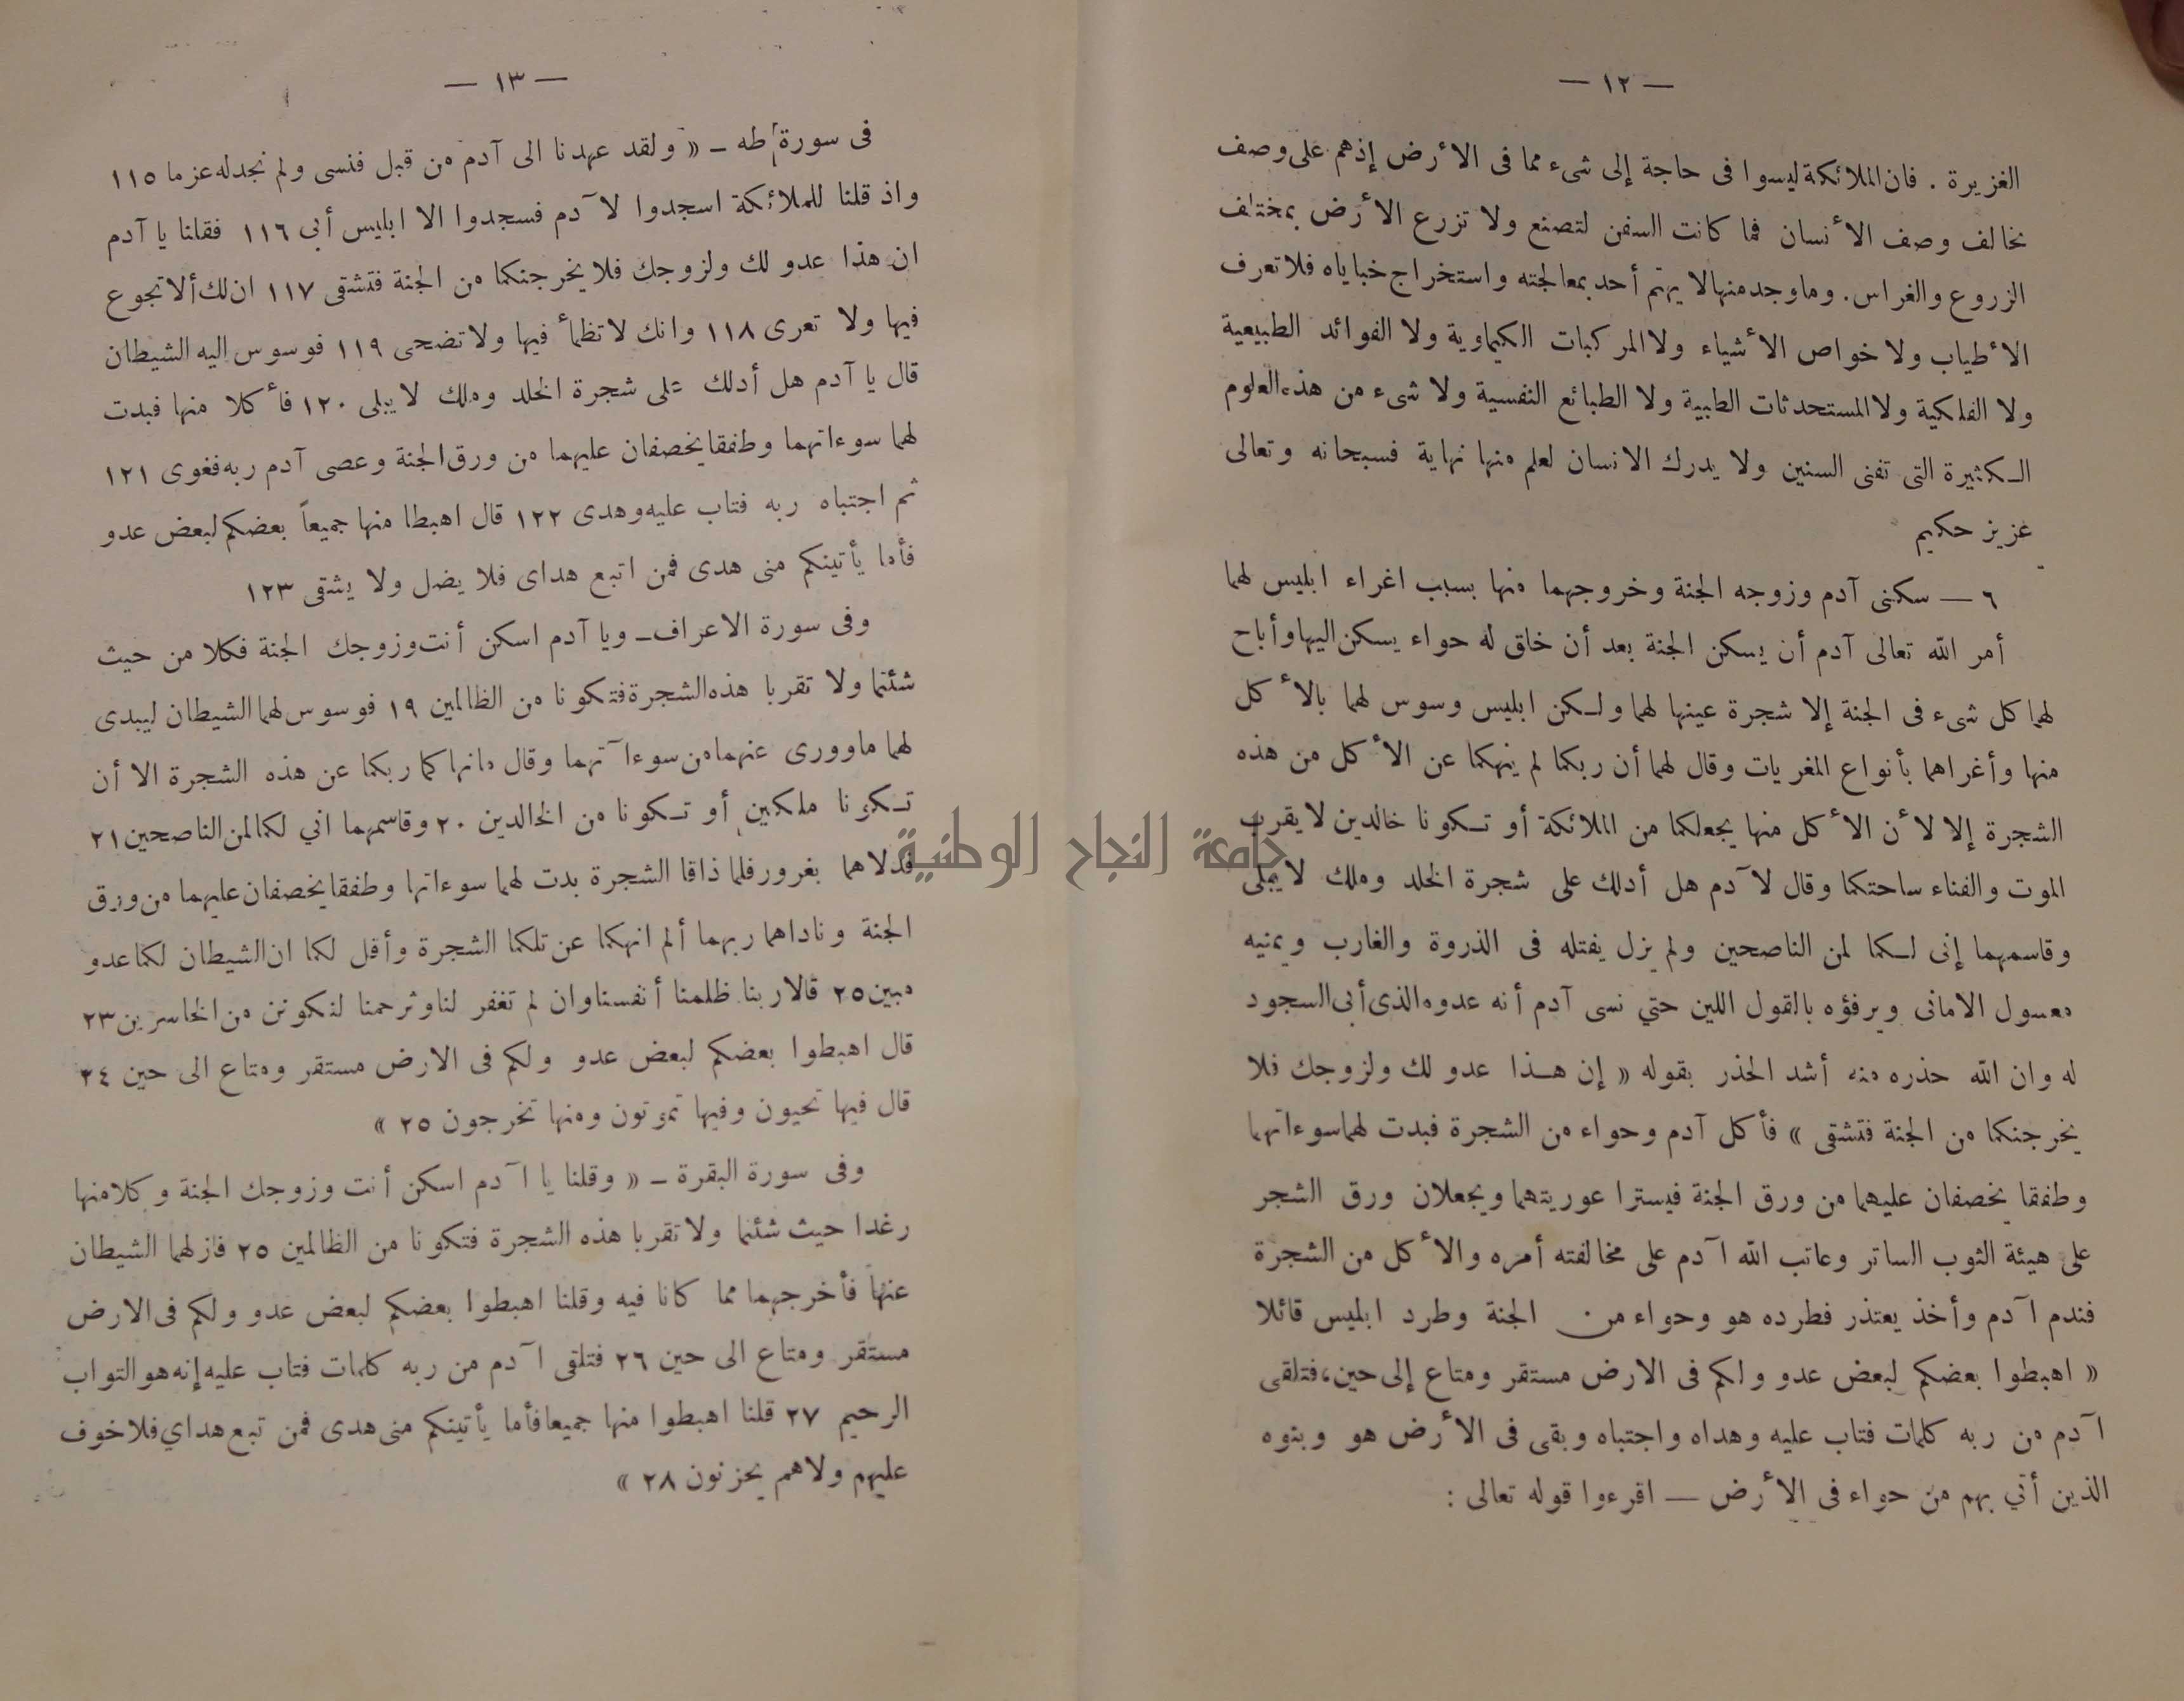 — ١٢ —
الغزيرة . فان الملائكة ليسوا فى حاجة إلى شىء مما فى الأرض إذهم على وصف
يخالف وصف الأنسان فما كانت السفن لتصنع ولا تزرع الأرض بمختلف
الزروع والغراس. وماوجد منها لا يهتم أحد بمعالجته واستخراج خباياه فلا تعرف
الأطياب ولا خواص الأشياء ولا المركبات الكيماوية ولا الفوائد الطبيعية
ولا الفلكية ولا المستحدثات الطبية ولا الطبائع النفسية ولا شىء من هذه العلوم
الكثيرة التى تفنى السنين ولا يدرك الانسان لعلم منها نهاية فسبحانه وتعالى
عزيز حكيم
٦ — سكنى آدم وزوجه الجنة وخروجهما منها بسبب اغراء ابليس لهما
أمر الله تعالى آدم أن يسكن الجنة بعد أن خلق له حواء يسكن اليها وأباح
لهما كل شىء فى الجنة إلا شجرة عينها لهما ولكن ابليس وسوس لهما بالأكل
منها وأغراهما بأنواع المغريات وقال لهما أن ربكما لم ينهكما عن الأكل من هذه
الشجرة إلا لأن الأكل منها يجعلكما من الملائكة أو تكونا خالدين لا يقرب
الموت والفناء ساحتكما وقال لآدم هل أدلك على شجرة الخلد وملك لا يبلى
وقاسمهما إنى لكما لمن الناصحين ولم يزل يفتله فى الذروة والغارب ويمنيه
معسول الامانى ويرفؤه بالقول اللين حتي نسى آدم أنه عدوه الذى أبى السجود
له وان الله حذره منه أشد الحذر بقوله « إن هذا عدو لك ولزوجك فلا
يخرجنكما من الجنة فتشقى » فأكل آدم وحواء من الشجرة فبدت لهما سوءاتهما
وطفقا يخصفان عليهما من ورق الجنة فيسترا عوريتهما ويجعلان ورق الشجر
على هيئة الثوب الساتر وعاتب الله آدم على مخالفته أمره والأكل من الشجرة
فندم آدم وأخذ يعتذر فطرده هو وحواء من الجنة وطرد ابليس قائلا
« اهبطوا بعضكم لبعض عدو ولكم فى الارض مستقر ومتاع إلى حين، فتلقى
آدم من ربه كلمات فتاب عليه وهداه واجتباه وبقى فى الأرض هو وبنوه
الذين أتي بهم من حواء فى الأرض — اقرءوا قوله تعالى :
— ١٣ —
فى سورة طه — « ولقد عهدنا الى آدم من قبل فنسى ولم نجدله عزما ١١٥
واذ قلنا للملائكة اسجدوا لآدم فسجدوا الا ابليس أبى ١١٦ فقلنا يا آدم
ان هذا عدو لك ولزوجك فلا يخرجنكما من الجنة فتشقى ١١٧ ان لك ألا تجوع
فيها ولا تعرى ١١٨ وانك لا تظمأ فيها ولا تضحى ١١٩ فوسوس اليه الشيطان
قال يا آدم هل أدلك على شجرة الخلد وملك لا يبلى ١٢٠ فأكلا منها فبدت
لهما سوءاتهما وطفقا يخصفان عليهما من ورق الجنة وعصى آدم ربه فغوى ١٢١
ثم اجتباه ربه فتاب عليه وهدى ١٢٢ قال اهبطا منها جميعاً بعضكم لبعض عدو
فأما يأتينكم منى هدى فمن اتبع هداى فلا يضل ولا يشقى ١٢٣
وفى سورة الاعراف — ويا آدم اسكن أنت وزوجك الجنة فكلا من حيث
شئتما ولا تقربا هذه الشجرة فتكونا من الظالمين ١٩ فوسوس لهما الشيطان ليبدى
لهما ماوورى عنهما من سوءآتهما وقال مانهاكما ربكما عن هذه الشجرة الا أن
تكونا ملكين أو تكونا من الخالدين ٢٠ وقاسمهما اني لكما لمن الناصحين ٢١
فدلاهما بغرور فلما ذاقا الشجرة بدت لهما سوءاتها وطفقا يخصفان عليهما من ورق
الجنة وناداهما ربهما ألم انهكما عن تلكما الشجرة وأقل لكما ان الشيطان لكما عدو
مبين ٢٥ قالا ربنا ظلمنا أنفسنا وان لم تغفر لنا وترحمنا لنكونن من الخاسرين ٢٣
قال اهبطوا بعضكم لبعض عدو ولكم فى الارض مستقر ومتاع الى حين ٢٤
قال فيها تحيون وفيها تموتون ومنها تخرجون ٢٥ »
وفى سورة البقرة — « وقلنا يا آدم اسكن أنت وزوجك الجنة وكلا منها
رغدا حيث شئتما ولا تقربا هذه الشجرة فتكونا من الظالمين ٢٥ فازلهما الشيطان
عنها فأخرجهما مما كانا فيه وقلنا اهبطوا بعضكم لبعض عدو ولكم فى الارض
مستقر ومتاع الى حين ٢٦ فتلقى آدم من ربه كلمات فتاب عليه إنه هو التواب
الرحيم ٢٧ قلنا اهبطوا منها جميعا فأما يأتينكم منى هدى فمن تبع هداي فلا خوف
عليهم ولا هم يحزنون ٢٨ »
جامعة النجاح الوطنية